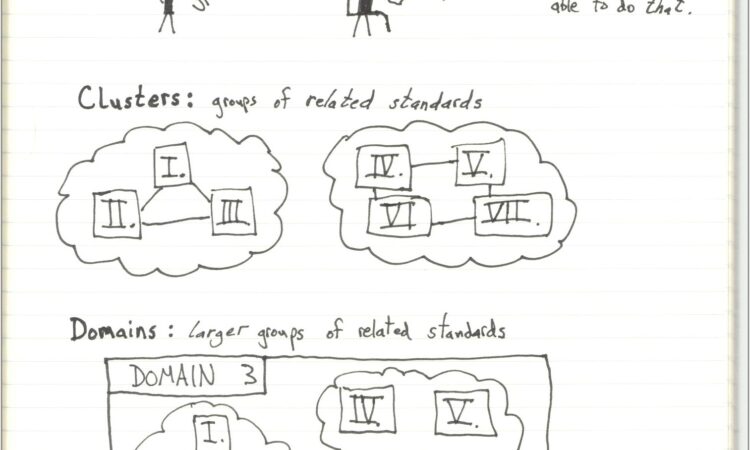 able to do that.
Clusters: groups of related standards
I.
IV.
V.
II.
III
VI
VII.
Domains: larger groups of related standards
DOMAIN 3
IV
V.
I.